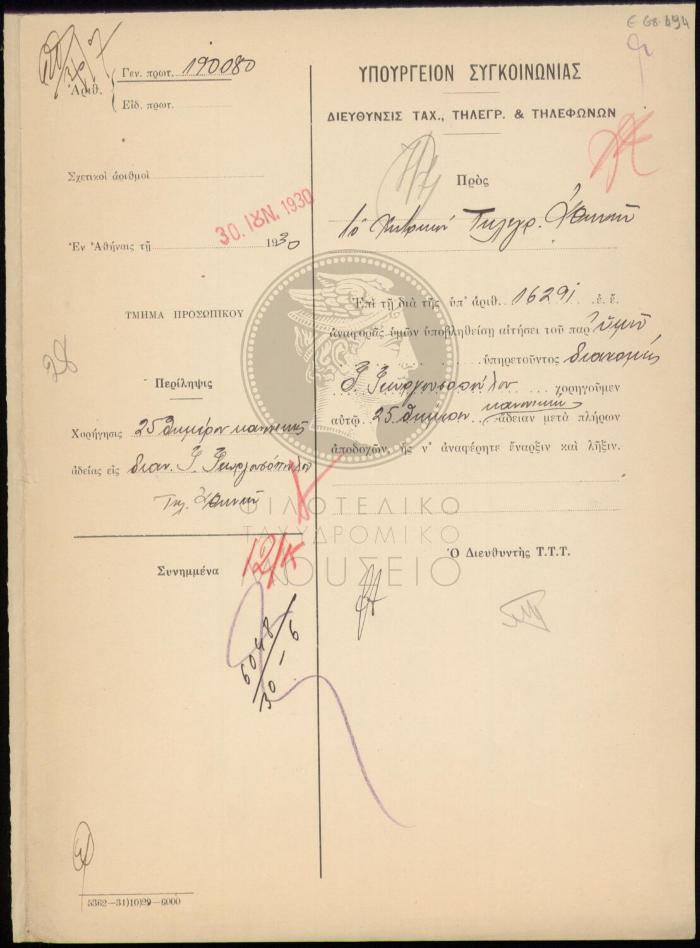 Ε 68.194
Ἀριθ.
Γεν. πρωτ. 190080
Εἰδ. πρωτ.
Σχετικοὶ ἀριθμοὶ
30. ΙΟΥΝ. 1930
Ἐν Ἀθήναις τῇ 1930
ΤΜΗΜΑ ΠΡΟΣΩΠΙΚΟΥ
28
Περίληψις
Χορήγησις 25 θημέρου κανονικῆς
ἀδείας εἰς διαν. Γεωργουσόπουλον
Τηλ.
Συνημμένα
12/κ
6048
30-6
5362—31)10)29—6000
ΥΠΟΥΡΓΕΙΟΝ ΣΥΓΚΟΙΝΩΝΙΑΣ
ΔΙΕΥΘΥΝΣΙΣ ΤΑΧ., ΤΗΛΕΓΡ. & ΤΗΛΕΦΩΝΩΝ
Πρὸς
Τηλεγρ.
Ἐπὶ τῇ διὰ τῆς ὑπ' ἀριθ. 16291 ἐ. ἔ.
ἀναφορᾶς ὑμῶν ὑποβληθείσῃ αἰτήσει τοῦ παρ' ὑμῖν
ὑπηρετοῦντος διανομέως
Γεωργουσοπούλου χορηγοῦμεν
αὐτῷ 25 θήμερον κανονικὴν ἄδειαν μετὰ πλήρων
ἀποδοχῶν, ἧς ν' ἀναφέρητε ἔναρξιν καὶ λῆξιν.
Ὁ Διευθυντὴς Τ.Τ.Τ.
ΦΙΛΟΤΕΛΙΚΟ
ΤΑΧΥΔΡΟΜΙΚΟ
ΜΟΥΣΕΙΟ